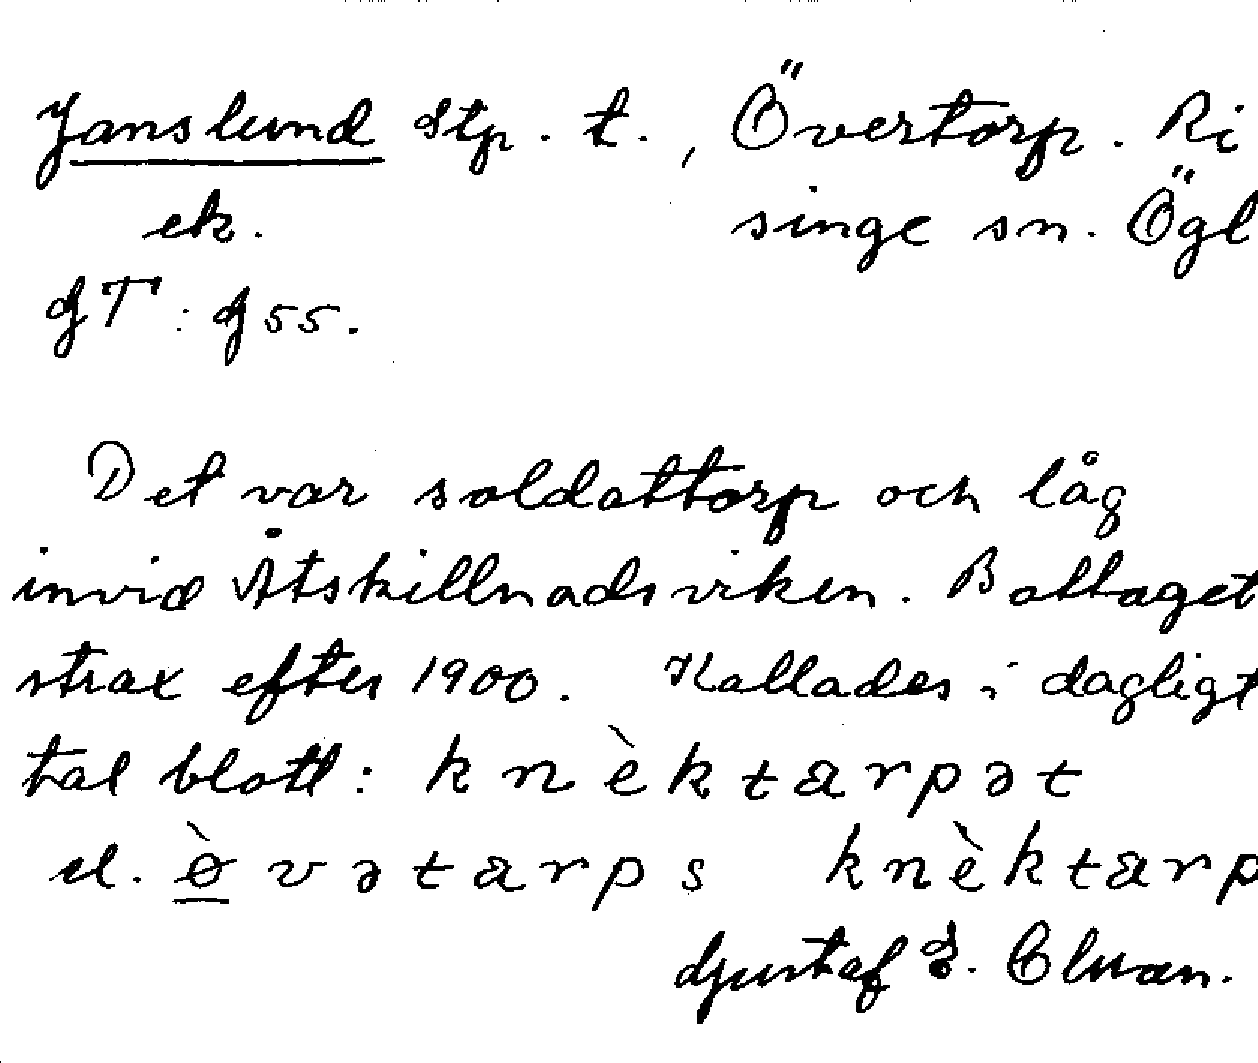 Janslund Stp. t., Övertorp. Ri
ek. singe sn. Ögl
GT: G55.
Det var soldattorp och låg
invid Åtskillnadsviken. Borttaget
strax efter 1900. Kallades i dagligt
tal blott: k n è k t a r p ə t
el. ø̀ v ə t a r p s k n è k t a r p
Gustaf E.